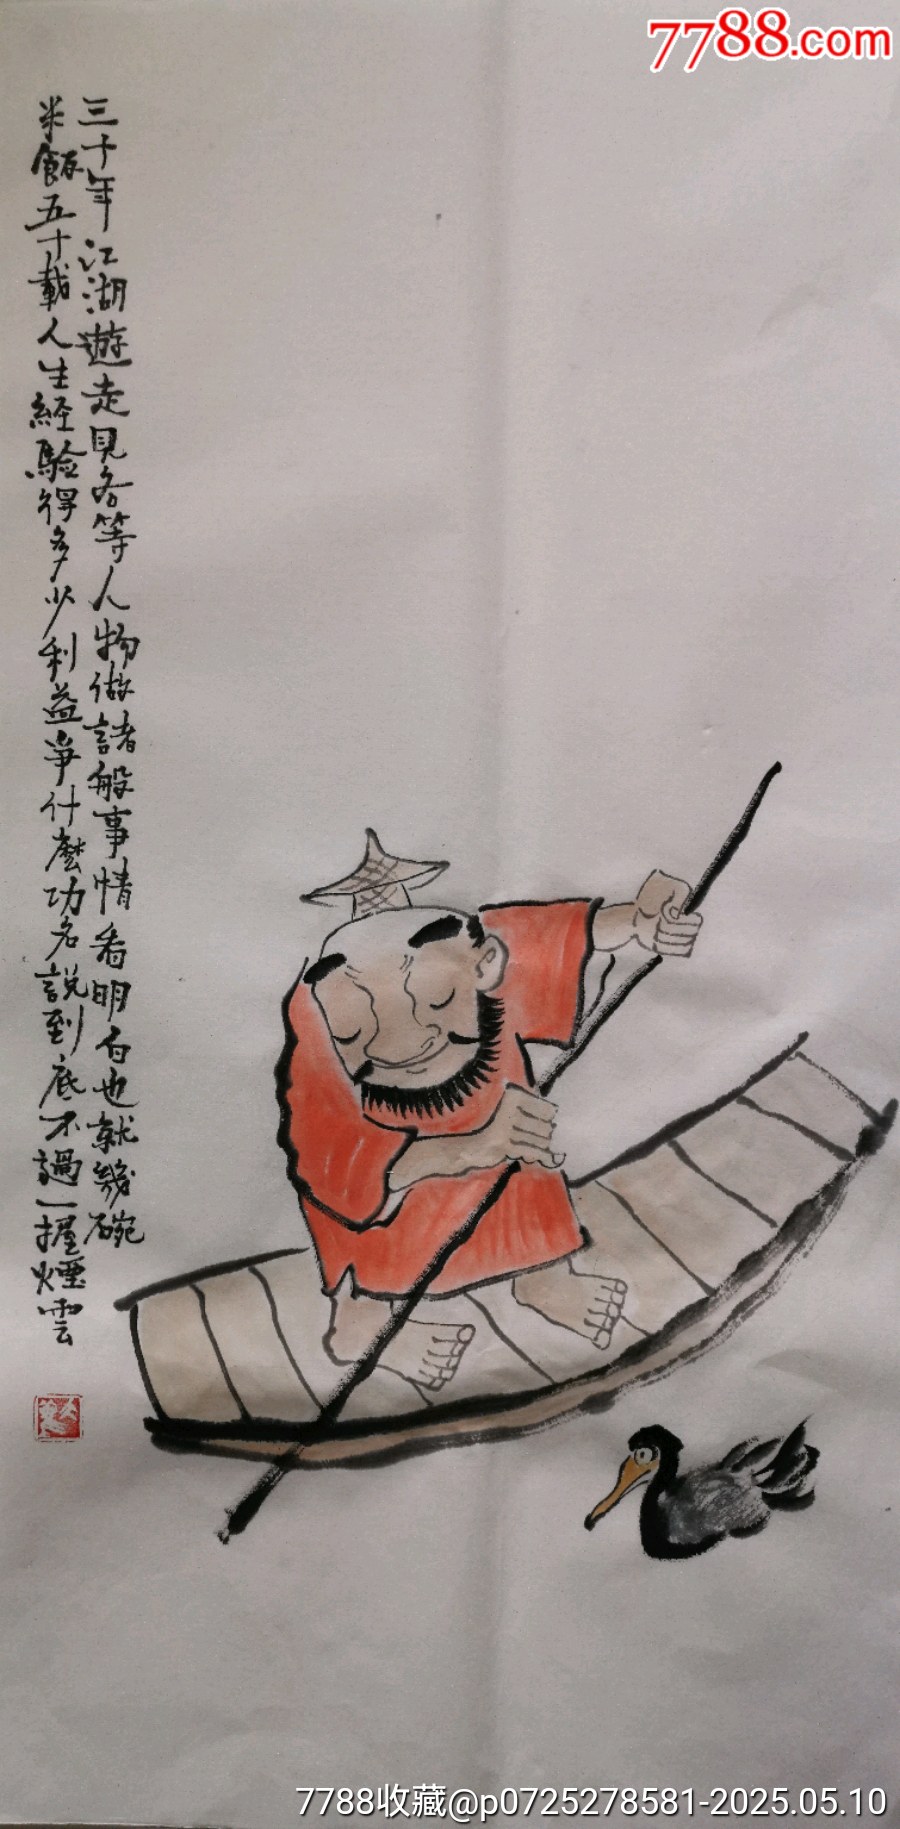 7788.com
三十年江湖遊走見各等人物做諸般事情看明白也就幾碗
米飯五十載人生經驗得多少利益爭什麽功名說到底不過一握煙雲
7788收藏@p0725278581-2025.05.10